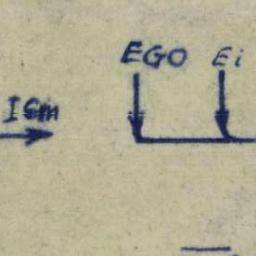 EGO Ei
I6m